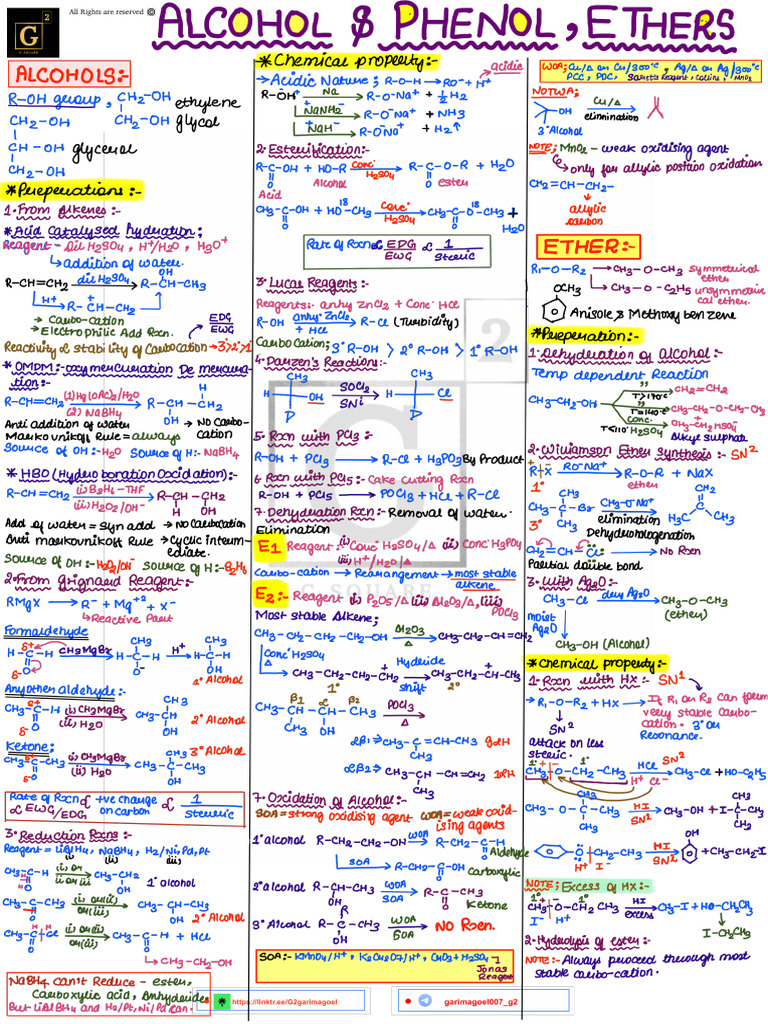 G 2
G SQUARE
All Rights are reserved ©
ALCOHOL & PHENOL, ETHERS
ALCOHOLS:-
R-OH group, CH₂-OH ethylene
CH₂-OH CH₂-OH glycol
CH-OH glycerol
CH₂-OH
*Preperations:-
1.From Alkenes:-
*Acid Catalysed hydration;
Reagent- Dil H₂SO₄, H⁺/H₂O, H₃O⁺
↳addition of water.
R-CH=CH₂ dil H₂SO₄ → R-CH-CH₃
OH
H⁺ → R-CH-CH₃
+
→ Carbo-Cation
→ Electrophilic Add Rxn.
EDG
EWG
Reactivity & stability of Carbocation → 3°>2°>1
*OMDM:-oxymercuration De mercura-
tion:-
R-CH=CH₂ (1)Hg(OAc)₂/H₂O → R-CH-CH₂
(2) NaBH₄
OH H
Anti addition of water → No Carbo-
Markovnikoff Rule = always Cation
Source of OH:-H₂O Source of H:-NaBH₄
* HBO (Hydro boration Oxidation):-
R-CH=CH₂ (i)B₂H₆-THF → R-CH-CH₂
(ii)H₂O₂/OH⁻ H OH
Add of water = Syn add → No Carbocation
Anti markovnikoff Rule → Cyclic interm-
ediate.
Source of OH:-H₂O₂/OH⁻ Source of H:-B₂H₆
2.From Grignard Reagent:-
RMgX → R⁻ + Mg⁺² + X⁻
↳Reactive Part
Formaldehyde
H-C-H CH₃MgBr → H-C-H H⁺ → H-C-H
δ+ O δ- CH₃ O⁻ CH₃ OH
1° Alcohol
Any other aldehyde:-
CH₃-C-H (i)CH₃MgBr → CH₃-CH
(ii)H₂O CH₃ OH
2° Alcohol
Ketone;
CH₃-C-CH₃ (i)CH₃MgBr → CH₃-C-CH₃
(ii)H₂O CH₃ OH
3° Alcohol
Rate of Rxn ∝ +ve change on carbon ∝ 1/Steric
∝ EWG/EDG
3.Reduction Rxns:-
Reagent = LiAlH₄, NaBH₄, H₂/Ni,Pd,Pt
(i) (ii) (iii)
CH₃-C-H → CH₃-CH₂
O OH
1° alcohol
CH₃-C-CH₃ → CH₃-CH-CH₃
O OH
2° Alcohol
CH₃-C-Cl → CH₃-C-H + HCl
O O
↳ CH₃-CH₂-OH
NaBH₄ Can't Reduce - ester,
Carboxylic acid, Anhydrides
But LiAlBH₄ and H₂/Pt, Ni/Pd Can.
*Chemical property:-
→Acidic Nature; R-O-H → RO⁻ + H⁺ acidic
R-OH Na → R-O⁻Na⁺ + ½H₂
NaNH₂ → R-O⁻Na⁺ + NH₃
NaH → R-O⁻Na⁺ + H₂↑
2.Esterification:-
R-C-OH + HO-R Conc H₂SO₄ → R-C-O-R + H₂O
O Alcohol O ester
Acid
CH₃-C-OH + HO¹⁸-CH₃ Conc H₂SO₄ → CH₃-C-O¹⁸-CH₃ + H₂O
O O
Rate of Rxn ∝ EDG/EWG ∝ 1/Steric
3.Lucas Reagents:-
Reagents:- anhy ZnCl₂ + Conc HCl
R-OH anhy-ZnCl₂ + HCl → R-Cl (Turbidity)
Carbo Cation; 3° R-OH > 2° R-OH > 1° R-OH
4.Darzen's Reactions:-
CH₃ CH₃
H OH SOCl₂ SNi → H Cl
D D
5. Rxn with PCl₃:-
R-OH + PCl₃ → R-Cl + H₃PO₃ By Product
6 Rxn with PCl₅:- Cake Cutting Rxn
R-OH + PCl₅ → POCl₃ + HCl + R-Cl
7.Dehydration Rxn:-Removal of water.
Elimination
E1 Reagent: (i) Conc H₂SO₄/Δ (ii) Conc H₃PO₄
(iii) H⁺/H₂O/Δ
Carbo-cation → Rearrangement → most stable
alkene
E2:- Reagent (i) P₂O₅/Δ (ii) Al₂O₃/Δ, (iii)
POCl₃
Most Stable Alkene;
CH₃-CH₂-CH₂-CH₂-OH Al₂O₃ Δ → CH₃-CH₂-CH=CH₂
Conc H₂SO₄
→ CH₃-CH₂-CH₂-CH₂ Hydride shift → CH₃-CH₂-CH-CH₃
+ 1° + 2°
β₁ α β₂
CH₃-CH-CH-CH₃ POCl₃ Δ →
CH₃ OH
αβ₁ ⇒ CH₃-C=CH-CH₃
CH₃
αβ₂ ⇒ CH₃-CH-CH=CH₂
CH₃
7.Oxidation of Alcohol:-
SOA = strong oxidising agent WOA = weak oxid-
ising agents
1°alcohol R-CH₂-CH₂-OH WOA → R-CH₂-C-H
O Aldehyde
SOA → R-CH₂-C-OH
O Carboxylic
2°alcohol R-CH-CH₃ WOA SOA → R-C-CH₃
OH O Ketone
3° Alcohol R-C-CH₃ WOA SOA → NO Rxn.
R OH
SOA:- KMnO₄/H⁺, K₂Cr₂O₇/H⁺, CrO₃+H₂SO₄ ]
Jonas
Reagent
WOA; Cu/Δ or Cu/300°C, Ag/Δ or Ag/300°C
PCC, PDC, Sarett's reagent, Collins, MnO₂
NOTWA;
OH Cu/Δ elimination →
3° Alcohol
NOTE; MnO₂ - weak oxidising agent
↳only for allylic position oxidation
CH₂=CH-CH₂-
↓
allylic
carbon
ETHER:-
R₁-O-R₂ → CH₃-O-CH₃ symmetrical
ether
→ CH₃-O-C₂H₅ unsymmetri
cal ether.
OCH₃
Anisole & Methoxy benzene
*Preperation:-
1.Dehydration of alcohol:-
Temp dependent Reaction
CH₃-CH₂-OH T>170°C → CH₂=CH₂
T=140°C → CH₃-CH₂-O-CH₂-CH₃
Conc. T≤110° H₂SO₄ → CH₃-CH₂HSO₄
Alkyl sulphate
2.Williamson Ether Synthesis:- SN²
R-X RO⁻Na⁺ → R-O-R + NaX
ether
1°
CH₃ CH₂
CH₃-C-Br CH₃-O⁻Na⁺ → C
3° CH₃ elimination H₃C CH₃
Dehydrohalogenation
CH₂=CH-Cl: → No Rxn
Partial double bond
3.With Ag₂O:-
CH₃-Cl dry Ag₂O → CH₃-O-CH₃
(ether)
moist
Ag₂O
CH₃-OH (Alcohol)
*Chemical property:-
1.Rxn with HX:- SN¹
→R₁-O-R₂ + HX → If R₁ or R₂ Can form
very stable Carbo-
cation. 3° or
Resonance.
SN²
attack on less
steric.
CH₃-O-CH₂-CH₃ HCl SN² → CH₃-Cl + HO-C₂H₅
H⁺ Cl⁻
CH₃ CH₃
CH₃-O-C-CH₃ HI SN² → CH₃-OH + I-C-CH₃
CH₃ CH₃
O-CH₂-CH₃ HI SN² → OH + CH₃-CH₂-I
H⁺ I⁻
NOTE; Excess of HX:-
CH₃-O-CH₂CH₃ HI excess → CH₃-I + HO-CH₂CH₃
I⁻ H⁺
I-CH₂CH₃
2.Hydrolysis of ester:-
NOTE:- Always proceed through most
stable carbo-cation.
https://linktr.ee/G2garimagoel
garimagoel007_g2